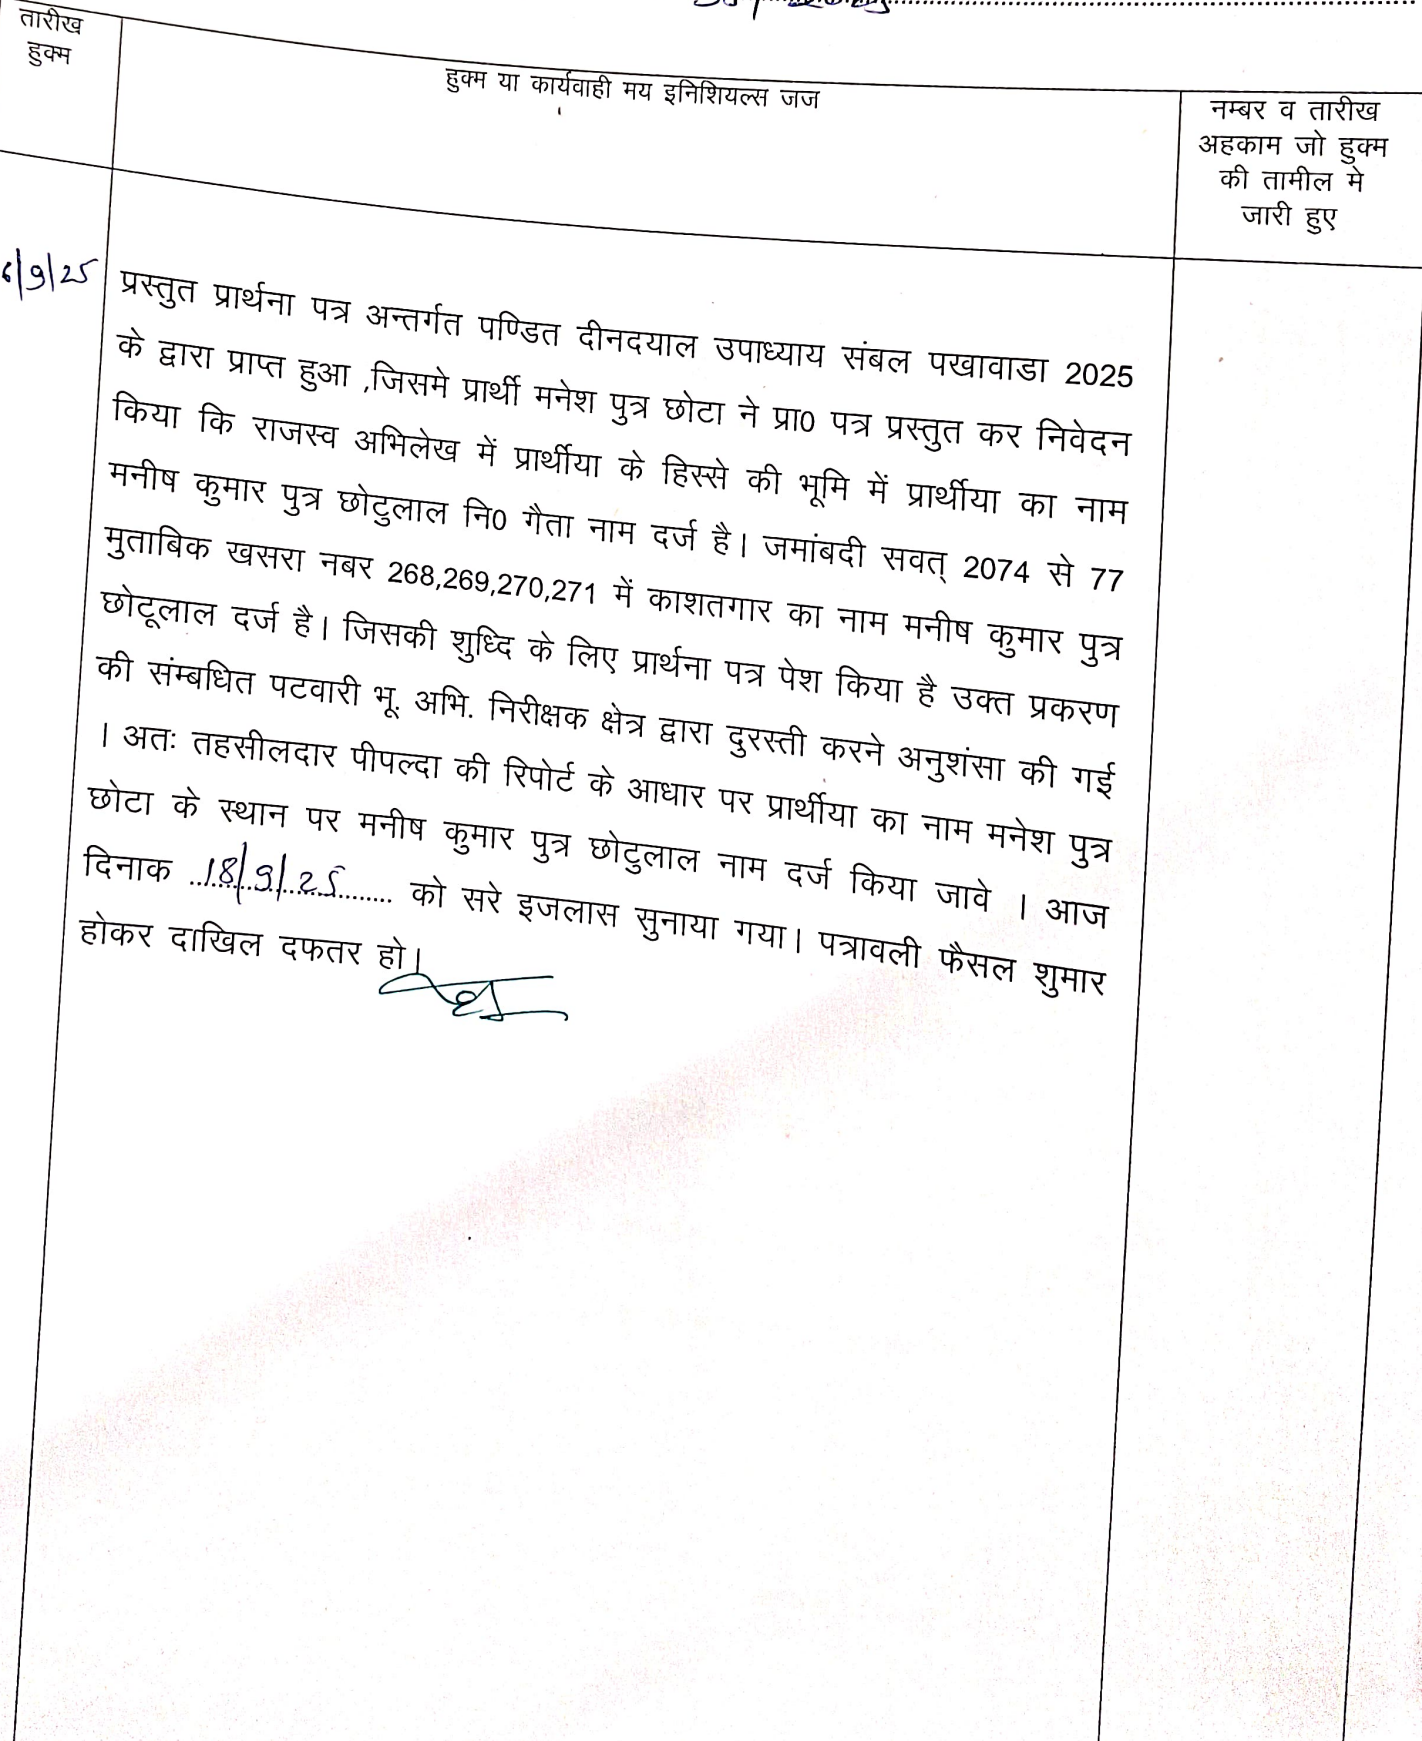 तारीख
हुक्म
हुक्म या कार्यवाही मय इनिशियल्स जज
नम्बर व तारीख
अहकाम जो हुक्म
की तामील मे
जारी हुए
6/9/25
प्रस्तुत प्रार्थना पत्र अन्तर्गत पण्डित दीनदयाल उपाध्याय संबल पखावाडा 2025
के द्वारा प्राप्त हुआ ,जिसमे प्रार्थी मनेश पुत्र छोटा ने प्रा0 पत्र प्रस्तुत कर निवेदन
किया कि राजस्व अभिलेख में प्रार्थीया के हिस्से की भूमि में प्रार्थीया का नाम
मनीष कुमार पुत्र छोटुलाल नि0 गैता नाम दर्ज है। जमांबदी सवत् 2074 से 77
मुताबिक खसरा नबर 268,269,270,271 में काशतगार का नाम मनीष कुमार पुत्र
छोटूलाल दर्ज है। जिसकी शुध्दि के लिए प्रार्थना पत्र पेश किया है उक्त प्रकरण
की संम्बधित पटवारी भू. अभि. निरीक्षक क्षेत्र द्वारा दुरस्ती करने अनुशंसा की गई
। अतः तहसीलदार पीपल्दा की रिपोर्ट के आधार पर प्रार्थीया का नाम मनेश पुत्र
छोटा के स्थान पर मनीष कुमार पुत्र छोटुलाल नाम दर्ज किया जावे । आज
दिनाक 18/9/25 को सरे इजलास सुनाया गया। पत्रावली फैसल शुमार
होकर दाखिल दफतर हो।